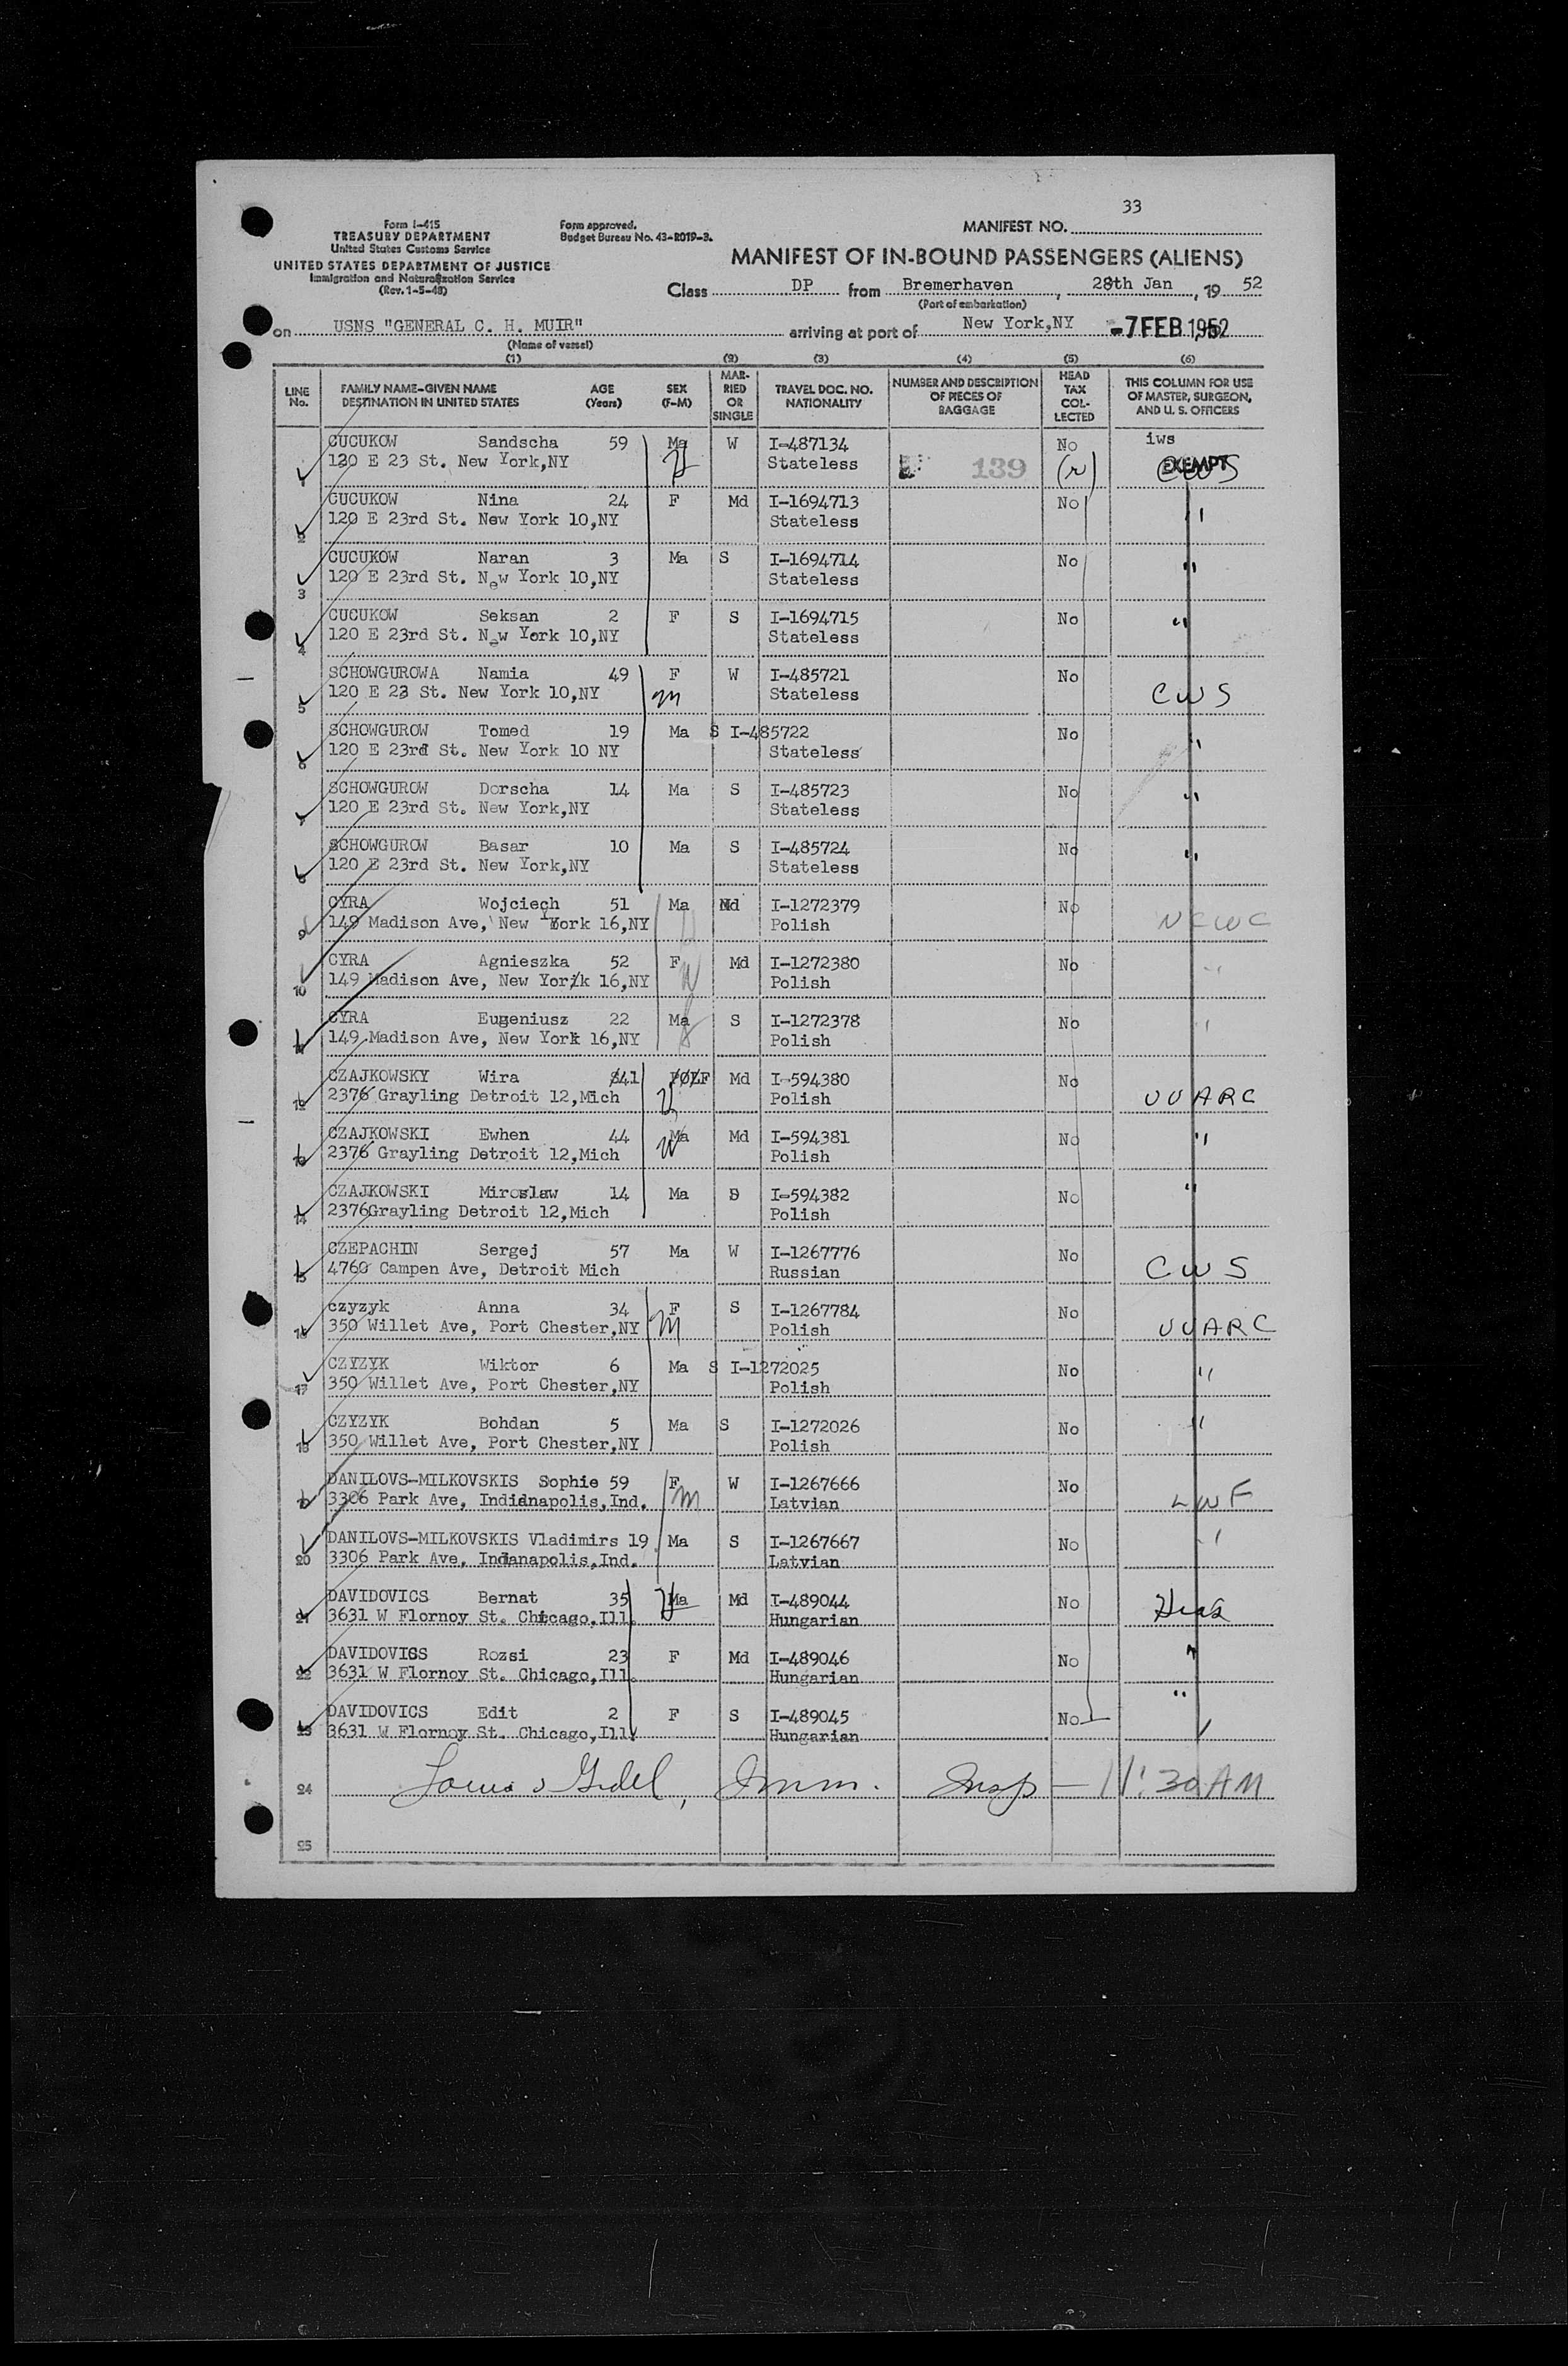 33
Form I-415
TREASURY DEPARTMENT
United States Customs Service
UNITED STATES DEPARTMENT OF JUSTICE
Immigration and Naturalization Service
(Rev. 1-5-48)
Form approved.
Budget Bureau No. 43-R019-3.
MANIFEST NO.
MANIFEST OF IN-BOUND PASSENGERS (ALIENS)
Class DP from Bremerhaven, 28th Jan, 19 52
(Port of embarkation)
on USNS "GENERAL C. H. MUIR" arriving at port of New York,NY -7 FEB 1952
(Name of vessel)
(1) (2) (3) (4) (5) (6)
LINE No. FAMILY NAME-GIVEN NAME DESTINATION IN UNITED STATES AGE (Years) SEX (F-M) MARRIED OR SINGLE TRAVEL DOC. NO. NATIONALITY NUMBER AND DESCRIPTION OF PIECES OF BAGGAGE HEAD TAX COLLECTED THIS COLUMN FOR USE OF MASTER, SURGEON, AND U. S. OFFICERS
1 CUCUKOW Sandscha 59 Ma W I-487134 No iws
120 E 23 St. New York,NY Stateless 139 (r) EXEMPT CWS
2 CUCUKOW Nina 24 F Md I-1694713 No "
120 E 23rd St. New York 10,NY Stateless
3 CUCUKOW Naran 3 Ma S I-1694714 No "
120 E 23rd St. New York 10,NY Stateless
4 CUCUKOW Seksan 2 F S I-1694715 No "
120 E 23rd St. New York 10,NY Stateless
5 SCHOWGUROWA Namia 49 F W I-485721 No
120 E 23 St. New York 10,NY m Stateless CWS
6 SCHOWGUROW Tomed 19 Ma S I-485722 No "
120 E 23rd St. New York 10 NY Stateless
7 SCHOWGUROW Dorscha 14 Ma S I-485723 No "
120 E 23rd St. New York,NY Stateless
8 SCHOWGUROW Basar 10 Ma S I-485724 No "
120 E 23rd St. New York,NY Stateless
9 CYRA Wojciech 51 Ma Md I-1272379 No
149 Madison Ave, New York 16,NY Polish NCWC
10 CYRA Agnieszka 52 F Md I-1272380 No "
149 Madison Ave, New York 16,NY Polish
11 CYRA Eugeniusz 22 Ma S I-1272378 No "
149 Madison Ave, New York 16,NY Polish
12 CZAJKOWSKY Wira 41 F Md I-594380 No
2376 Grayling Detroit 12,Mich Polish UUARC
13 CZAJKOWSKI Ewhen 44 Ma Md I-594381 No "
2376 Grayling Detroit 12,Mich Polish
14 CZAJKOWSKI Miroslaw 14 Ma S I-594382 No "
2376Grayling Detroit 12,Mich Polish
15 CZEPACHIN Sergej 57 Ma W I-1267776 No
4760 Campen Ave, Detroit Mich Russian CWS
16 czyzyk Anna 34 F S I-1267784 No
350 Willet Ave, Port Chester,NY m Polish UUARC
17 CZYZYK Wiktor 6 Ma S I-1272025 No "
350 Willet Ave, Port Chester,NY Polish
18 CZYZYK Bohdan 5 Ma S I-1272026 No "
350 Willet Ave, Port Chester,NY Polish
19 DANILOVS-MILKOVSKIS Sophie 59 F W I-1267666 No
3306 Park Ave, Indianapolis,Ind. m Latvian LWF
20 DANILOVS-MILKOVSKIS Vladimirs 19 Ma S I-1267667 No "
3306 Park Ave, Indianapolis,Ind. Latvian
21 DAVIDOVICS Bernat 35 Ma Md I-489044 No
3631 W Flornoy St. Chicago.Ill. Hungarian Hias
22 DAVIDOVISS Rozsi 23 F Md I-489046 No "
3631 W Flornoy St. Chicago,Ill. Hungarian
23 DAVIDOVICS Edit 2 F S I-489045 No "
3631 W Flornoy St. Chicago,Ill. Hungarian
24 Imm. Insp — 11:30 AM
25